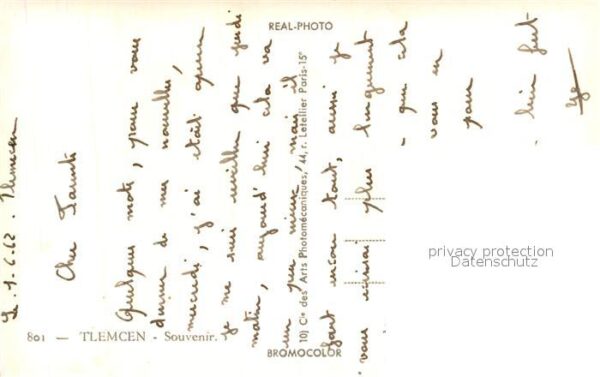 Le 1.6.62. Tlemcen
Cher Tantis
Quelques mots, pour vous
donner de mes nouvelles,
mercredi, j'ai était
je me suis que jeudi
matin, aujourd'hui cela va
un peu mieux, mais il
faut encore tout, aussi je
vous écrirai plus longuement
que cela
vous
pour
bien
REAL-PHOTO
10) Cie des Arts Photomécaniques, 44, r. Letellier Paris-15e
801 — TLEMCEN - Souvenir.
BROMOCOLOR
privacy protection
Datenschutz